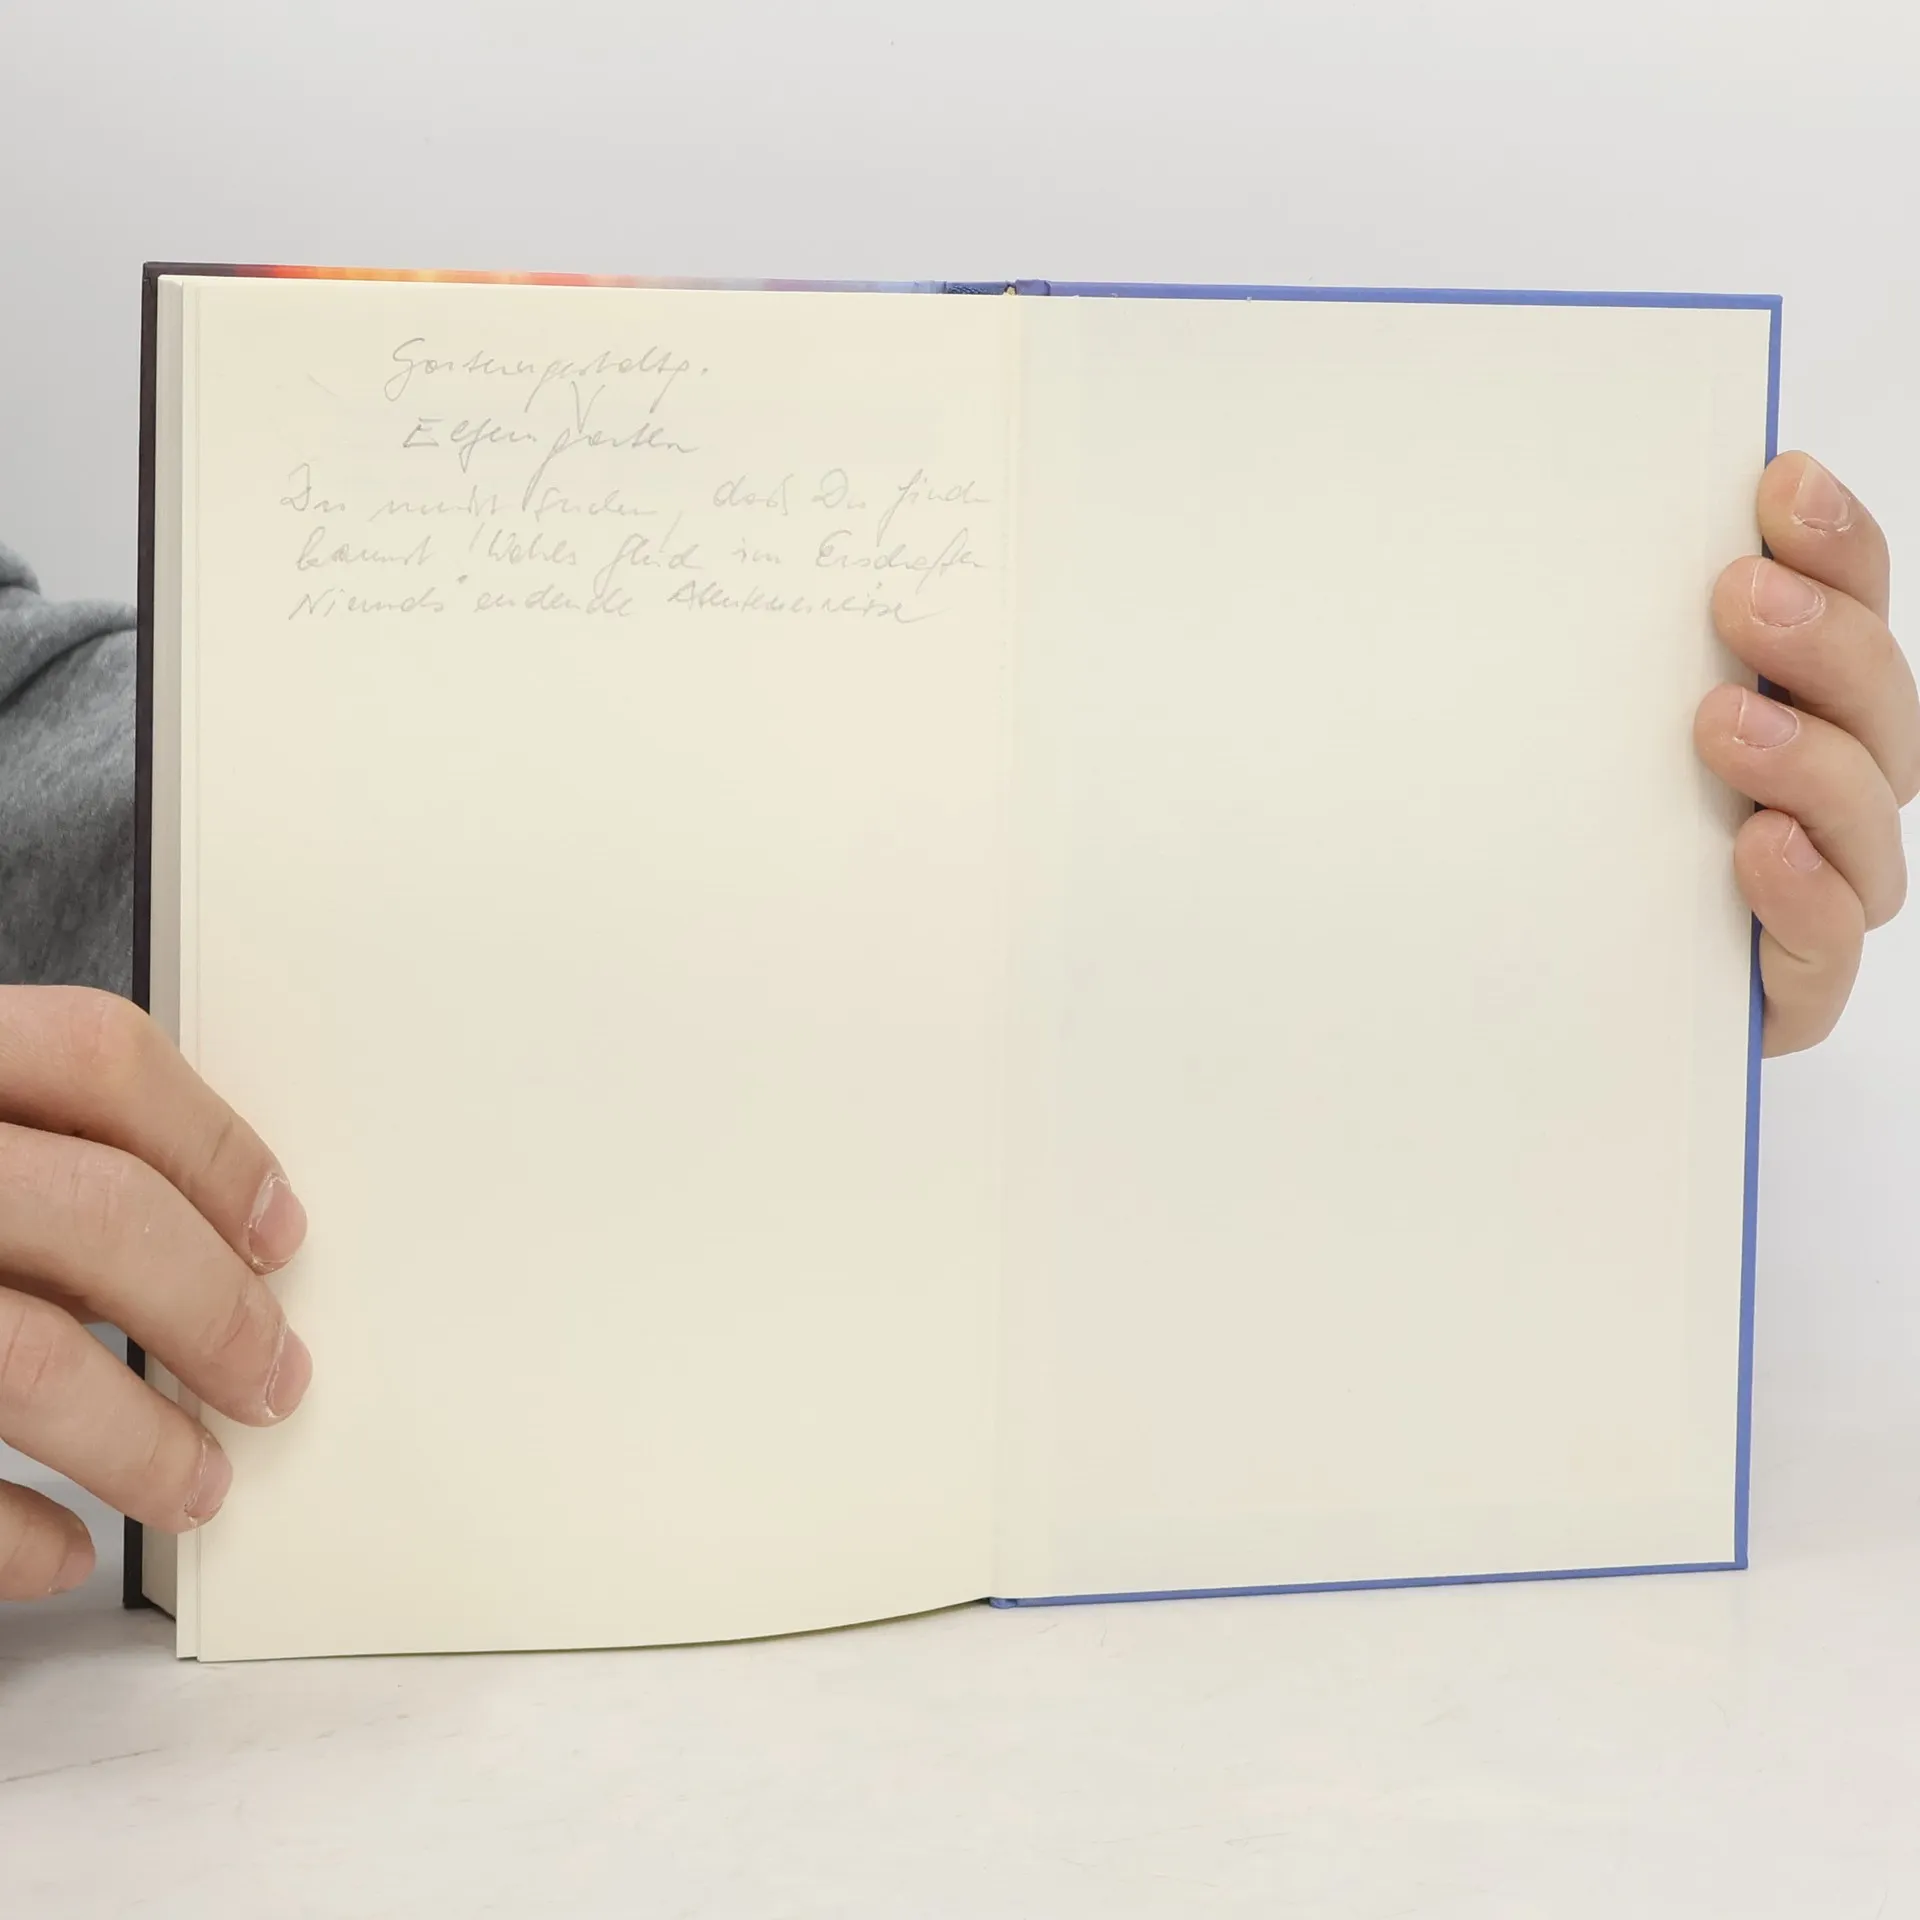 Gartengestaltg.
Elfengarten
Du musst suchen, daß Du finden
kannst! Wahres Glück im Erschaffen
Niemals endende Abenteuerreise